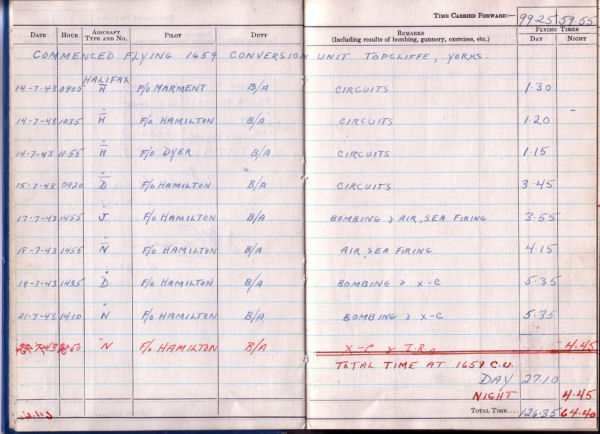 TIME CARRIED FORWARD:— 99·25 59·55
DATE HOUR AIRCRAFT TYPE AND NO. PILOT DUTY REMARKS (Including results of bombing, gunnery, exercises, etc.) FLYING TIMES DAY NIGHT
COMMENCED FLYING 1659 CONVERSION UNIT TOPCLIFFE, YORKS.
HALIFAX
14-7-43 0905 H F/O MARMENT B/A CIRCUITS 1·30
14-7-43 1035 " H F/O HAMILTON B/A CIRCUITS 1·20
14-7-43 11·55 " H F/O DYER B/A CIRCUITS 1·15
15-7-43 0920 " D F/O HAMILTON B/A CIRCUITS 3·45
17-7-43 1455 " J F/O HAMILTON B/A BOMBING & AIR, SEA FIRING 3·55
18-7-43 1455 " N F/O HAMILTON B/A AIR, SEA FIRING 4·15
19-7-43 1435 " D F/O HAMILTON B/A BOMBING & X-C 5·35
21-7-43 1410 " N F/O HAMILTON B/A BOMBING & X-C 5·35
7-43 " N F/O HAMILTON B/A X-C & I.R. 4·45
TOTAL TIME AT 1659 C.U.
DAY 27·10
NIGHT 4·45
TOTAL TIME.... 126·35 64·40